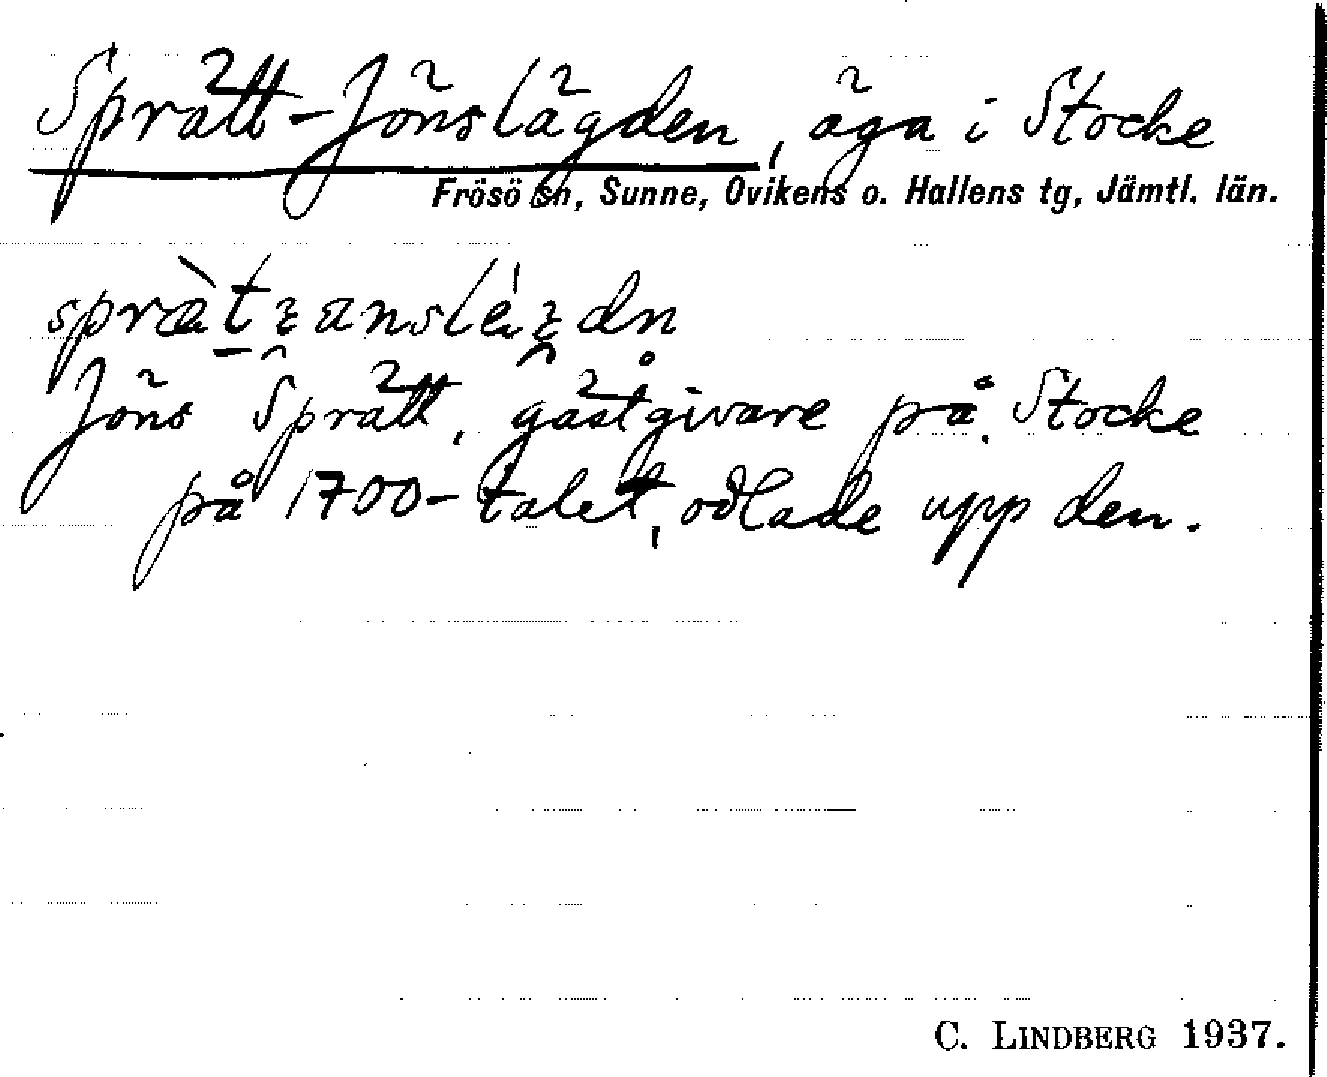 Sprätt-Jönslägden, äga i Stocke
Frösö sn, Sunne, Ovikens o. Hallens tg, Jämtl. län.
Jöns Sprätt, gästgivare på Stocke
på 1700-talet, odlade upp den.
C. LINDBERG 1937.